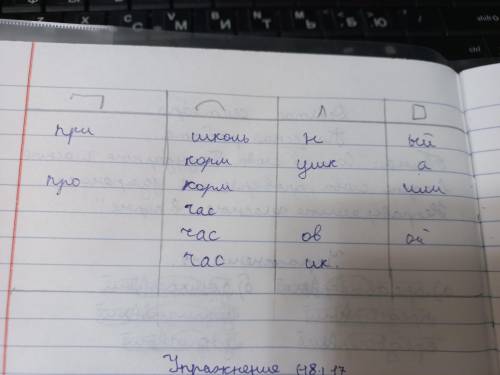 при школь н ый
корм ушк а
про корм или
час
час ов ой
час ик.
Упражнение 17